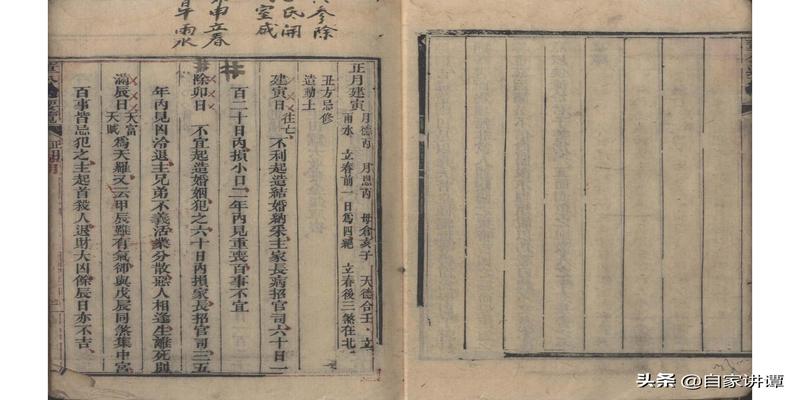 參除
氐閉
室成
申立春
平雨水
正月建寅 月德丙 月恩丙 母倉亥子 天德合壬 立
雨水 立春前一日為四絕 立春後三煞在北
丑方忌修
造動土
建寅日 往亡 不利起造結婚納采主家長病招官司六十日一
百二十日內損小口二年內見重喪百事不宜
除卯日 不宜起造婚姻犯之六十日內損家長招官司三五
年內見凶冷退主兄弟不義活業分散惡人相逢生離死別
滿辰日 天富 天賊 為天羅又云甲辰雖有氣卻與戊辰同煞集中宮
百事皆忌犯之主起首殺人退財大凶餘辰日亦不吉
头条 @自家讲谭